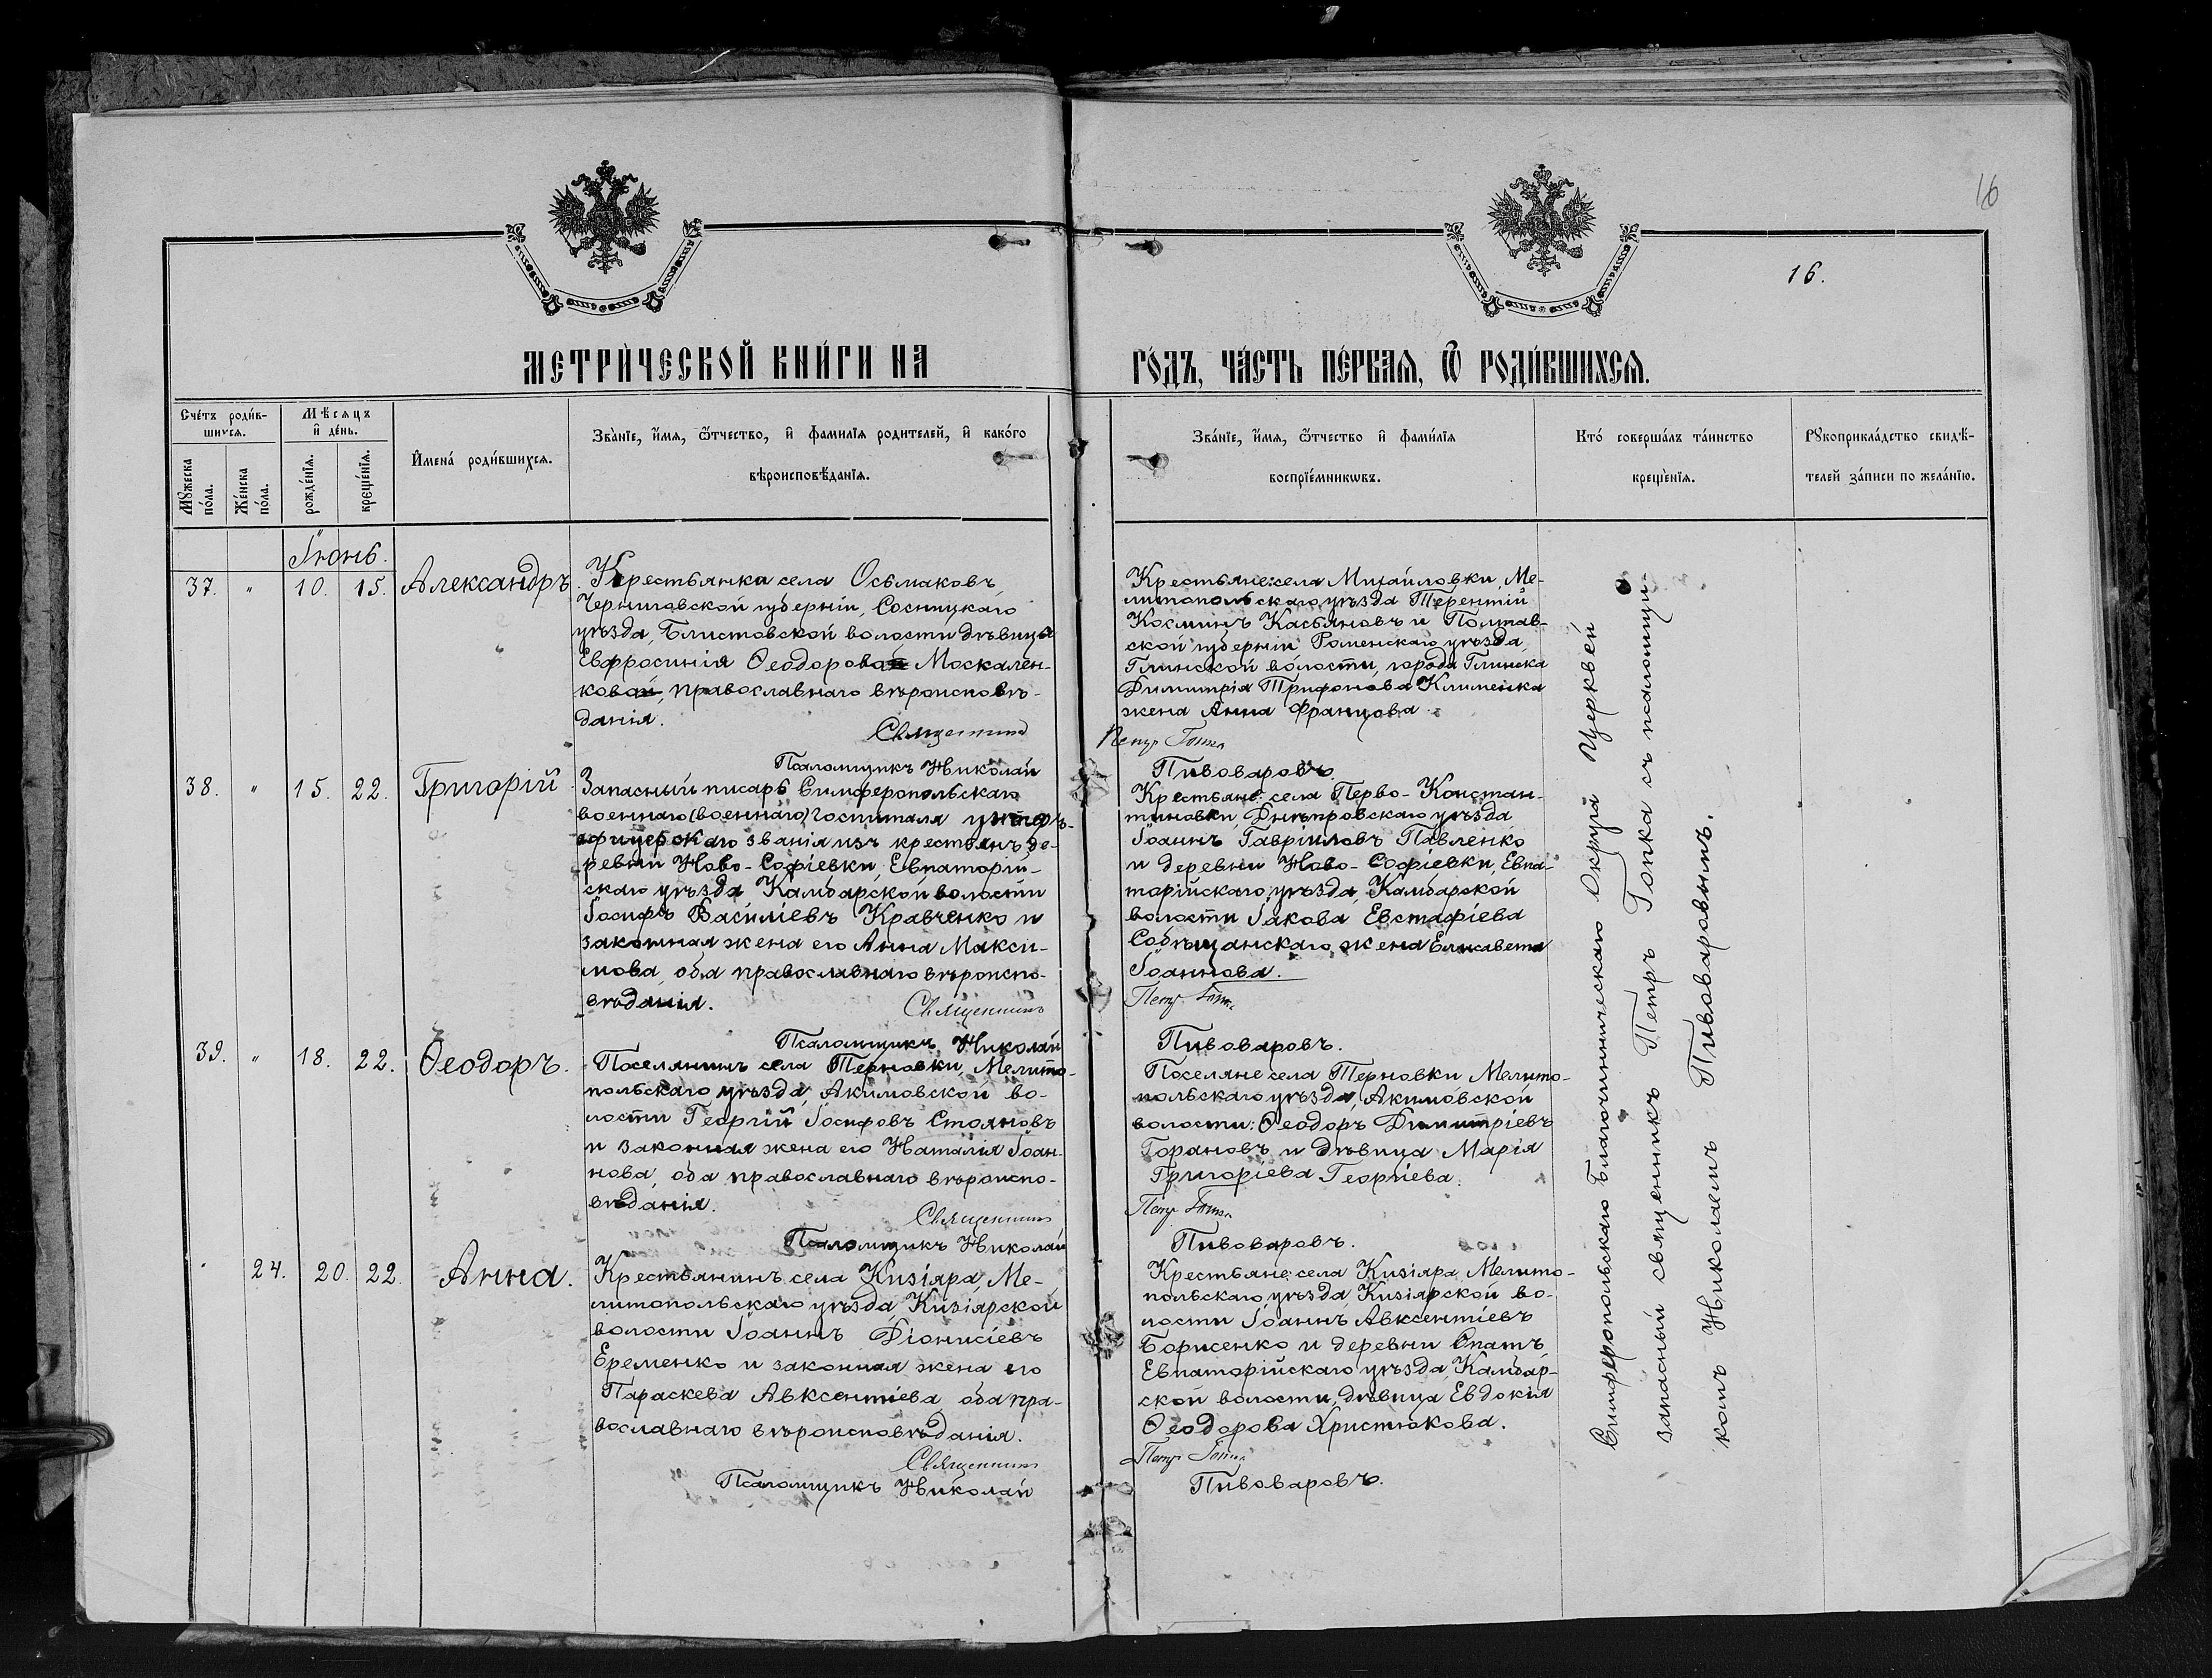 16
16.
МЕТРИ́ЧЕСКОЙ КНИ́ГИ НА
ГО́ДЪ, ЧА́СТЬ ПЕ́РВАЯ, Ѿ РОДИ́ВШИХСѦ.
Сче́тъ роди́в-
шихсѧ.
Мѣсяцъ
и҆ де́нь.
Мꙋжеска по́ла.
Же́нска по́ла.
рожде́нїѧ.
креще́нїѧ.
И҆мена́ роди́вшихсѧ.
Зва́нїе, и҆́мѧ, ѻ҆́тчество, и҆ фамилїѧ родителей, и҆ како́го
вѣроисповѣ́данїѧ.
Зва́нїе, и҆́мѧ, ѻ҆́тчество и҆ фами́лїѧ
воспрїе́мникѡвъ.
Кто́ соверша́лъ та́инство
креще́нїѧ.
Рꙋкоприкла́дство свидѣ́-
телей за́писи по жела́нїю.
Іюнь.
37. " 10. 15. Александръ.
Крестьянка села Осьмаковъ,
Черниговской губерніи, Сосницкаго
уѣзда, Блистовской волости дѣвица
Евфросинія Ѳеодорова Москален-
кова, православнаго вѣроисповѣ-
данія.
Священникъ
Псаломщикъ Николай
Крестьяне: села Михайловки, Ме-
литопольскаго уѣзда Терентій
Косминъ Касьяновъ и Полтав-
ской губерніи Роменскаго уѣзда,
Глинской волости, города Глинска
Димитрія Трифонова Клименка
жена Анна Францова.
Петр Гопка
Пивоваровъ.
38. " 15. 22. Григорій
Запасный писарь Симферопольскаго
военнаго (военнаго) госпиталя унтеръ-
офицерскаго званія изъ крестьянъ де-
ревни Ново-Софіевки, Евпаторій-
скаго уѣзда Камбарской волости
Іосифъ Василіевъ Кравченко и
законная жена его Анна Макси-
мова, оба православнаго вѣроиспо-
вѣданія.
Священникъ
Псаломщикъ Николай
Крестьяне: села Перво-Констан-
тиновки, Днѣпровскаго уѣзда
Іоаннъ Гавріиловъ Павленко
и деревни Ново-Софіевки, Евпа-
торійскаго уѣзда, Камбарской
волости Іакова Евстафіева
Собѣщанскаго жена Елисавета
Іоаннова.
Петр Гопка
Пивоваровъ.
39. " 18. 22. Ѳеодоръ.
Поселянинъ села Терновки, Мелито-
польскаго уѣзда, Акимовской во-
лости Георгій Іосифовъ Стояновъ
и законная жена его Наталія Іоан-
нова, оба православнаго вѣроиспо-
вѣданія.
Священникъ
Псаломщикъ Николай
Поселяне села Терновки Мелито-
польскаго уѣзда, Акимовской
волости: Ѳеодоръ Димитріевъ
Горановъ и дѣвица Марія
Григоріева Георгіева.
Петр Гопка
Пивоваровъ.
24. 20. 22. Анна.
Крестьянинъ села Кизіяра, Ме-
литопольскаго уѣзда, Кизіярской
волости Іоаннъ Діонисіевъ
Еременко и законная жена его
Параскева Авксентіева, оба пра-
вославнаго вѣроисповѣданія.
Священникъ
Псаломщикъ Николай
Крестьяне: села Кизіяра, Мелито-
польскаго уѣзда Кизіярской во-
лости Іоаннъ Авксентіевъ
Борисенко и деревни Спатъ
Евпаторійскаго уѣзда, Камбар-
ской волости, дѣвица Евдокія
Ѳеодорова Христюкова.
Петр Гопка
Пивоваровъ.
Симферопольскаго Благочинническаго Округа Церквей
запасный священникъ Петръ Гопка съ псаломщи-
комъ Николаемъ Пивоваровымъ.